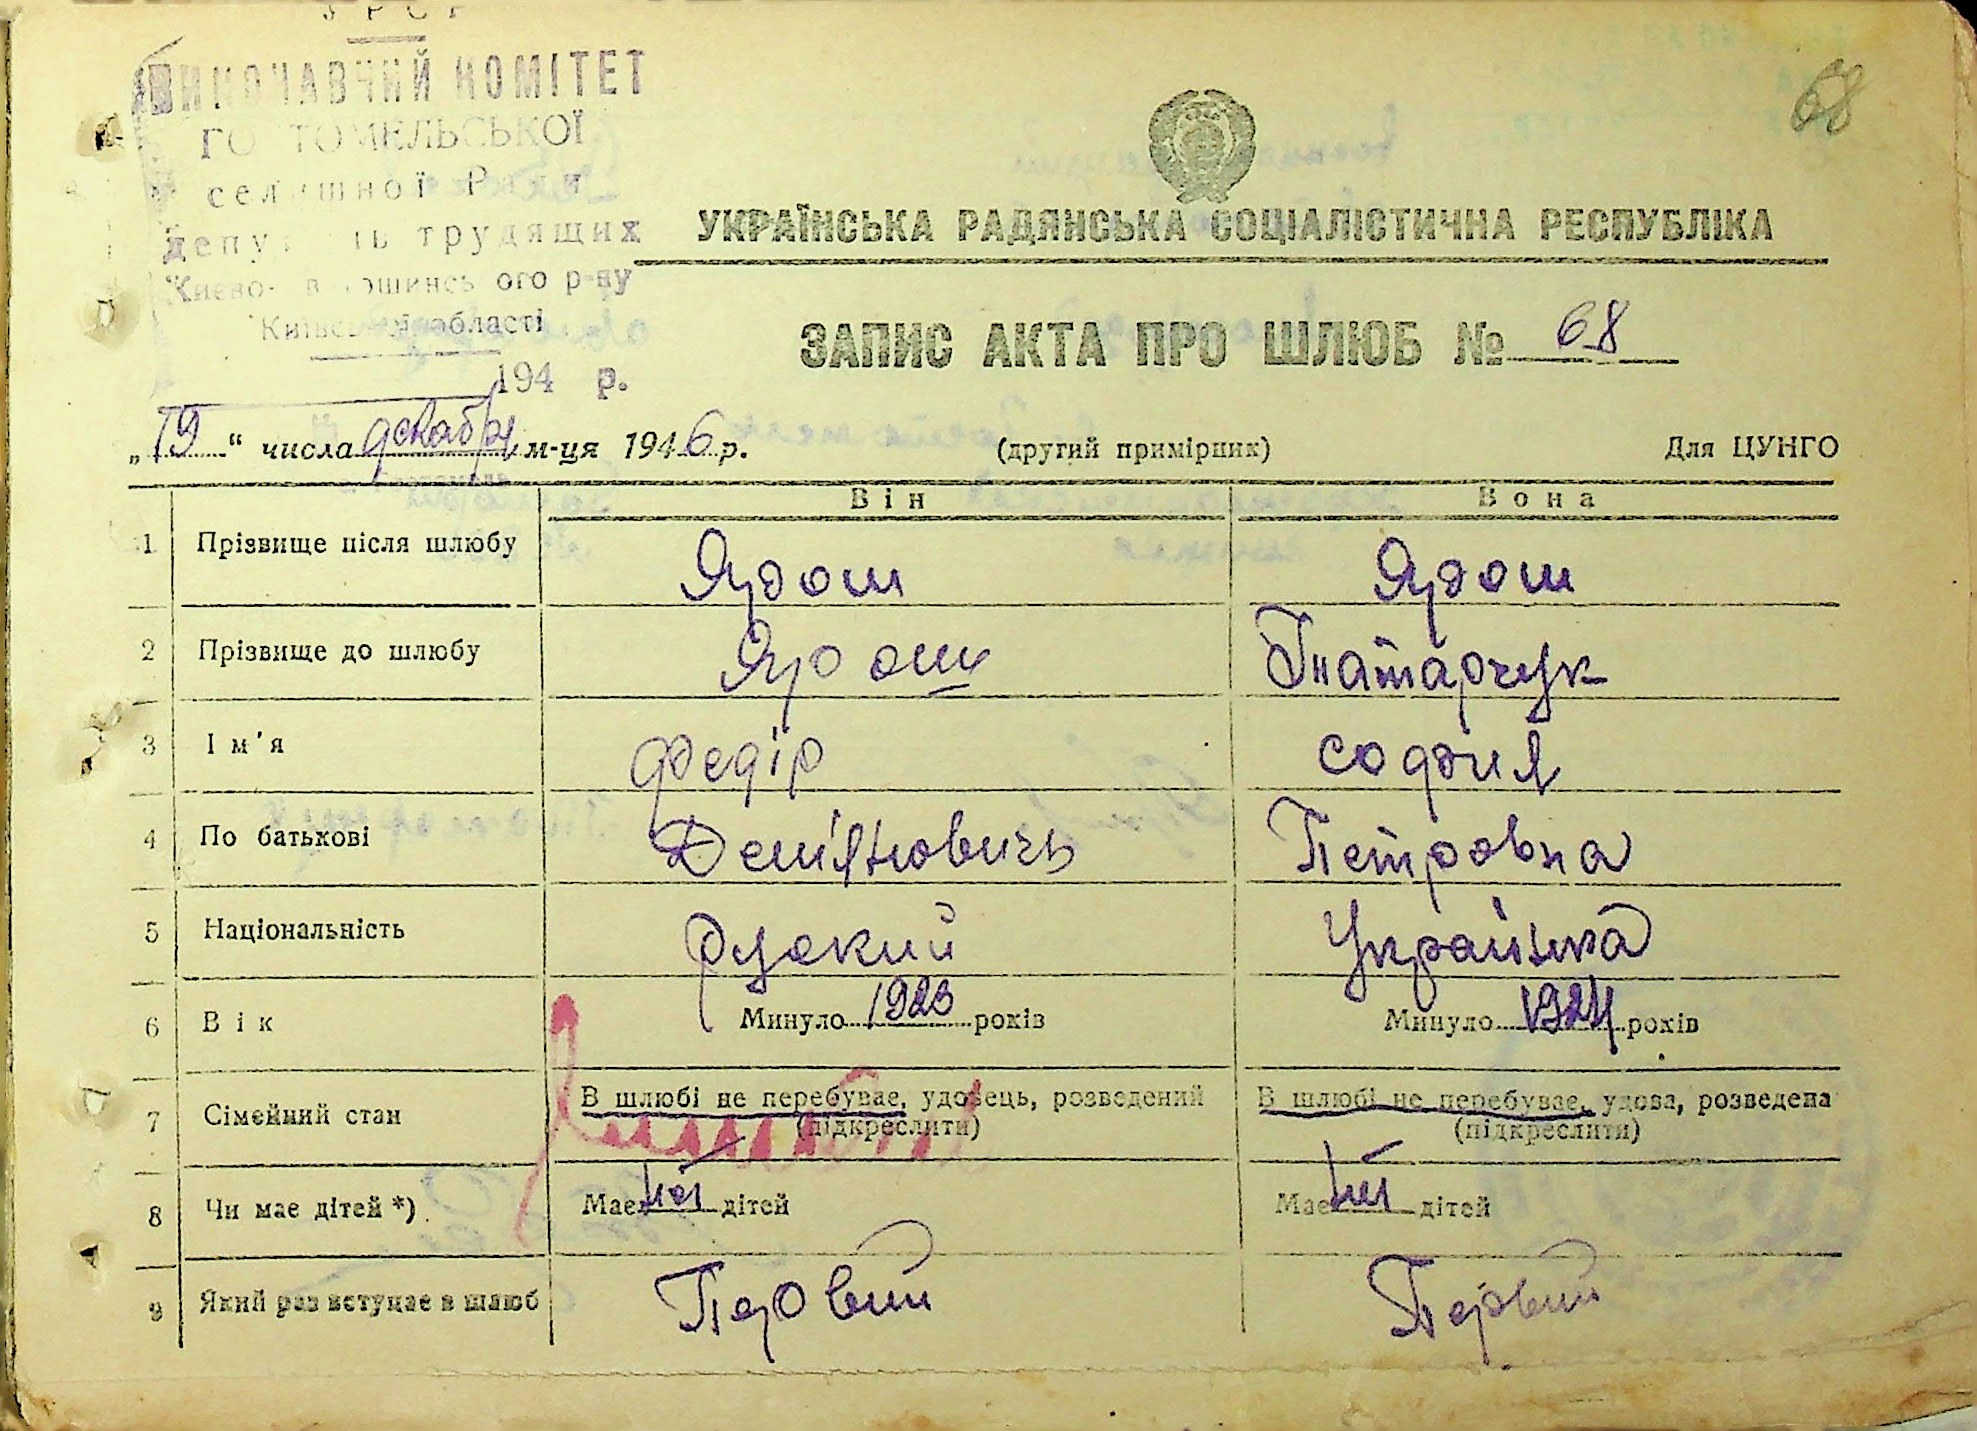 УРСР
ВИКОНАВЧИЙ КОМІТЕТ
ГОСТОМЕЛЬСЬКОЇ
селишної Ради
депутатів трудящих
Києво-Святошинського р-ну
Київської області
194 р.
68
УКРАЇНСЬКА РАДЯНСЬКА СОЦІАЛІСТИЧНА РЕСПУБЛІКА
ЗАПИС АКТА ПРО ШЛЮБ № 68
„19“ числа декабря м-ця 1946 р. (другий примірник) Для ЦУНГО
Він Вона
1 Прізвище після шлюбу Ярош Ярош
2 Прізвище до шлюбу Ярош Гнатарчук
3 Ім'я Федір София
4 По батькові Демʼяновичь Петровна
5 Національність Руский Українка
6 Вік Минуло 1923 років Минуло 1924 років
7 Сімейний стан В шлюбі не перебуває, удовець, розведений В шлюбі не перебуває, удова, розведена
(підкреслити) (підкреслити)
8 Чи має дітей *) Має ніт дітей Має ніт дітей
9 Який раз вступає в шлюб Первий Первий